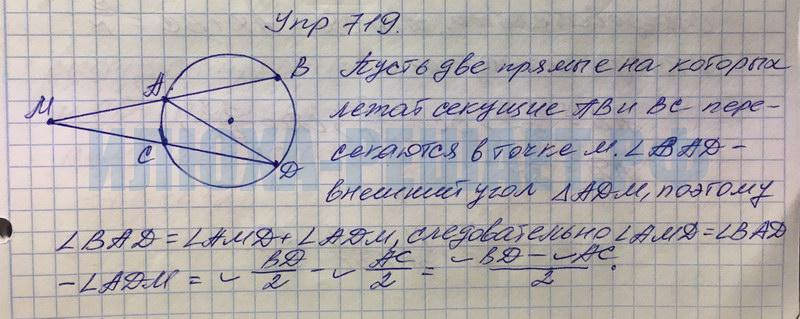 Упр 719.
М
А
В
С
D
Пусть две прямые на которых
лежат секущие АВ и ВС пере-
секаются в точке М. ∠BAD -
внешний угол ΔADM, поэтому
∠BAD = ∠AMD + ∠ADM, следовательно ∠AMD = ∠BAD
- ∠ADM = ◡ BD/2 - ◡ AC/2 = (◡BD - ◡AC)/2.